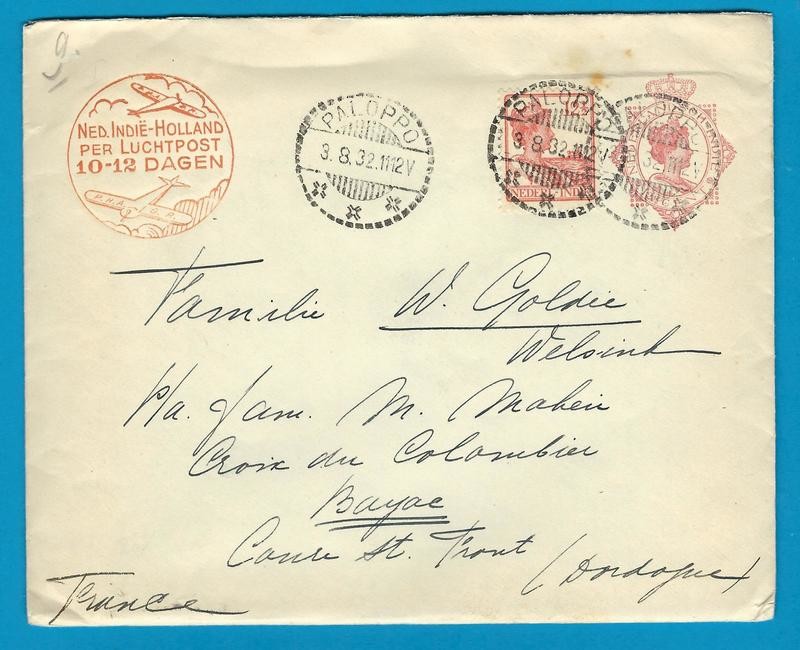 g.
NED. INDIË-HOLLAND
PER LUCHTPOST
10-12 DAGEN
PALOPPO
3.8.32.1112V
PALOPPO
3.8.32.1112V
NEDERL. INDIË
PALOPPO
Familie W. Goldie
Welsink
P/a. fam. M. Mahein
Croix du Colombier
Bayac
Couze St. Front
(Dordogne)
France